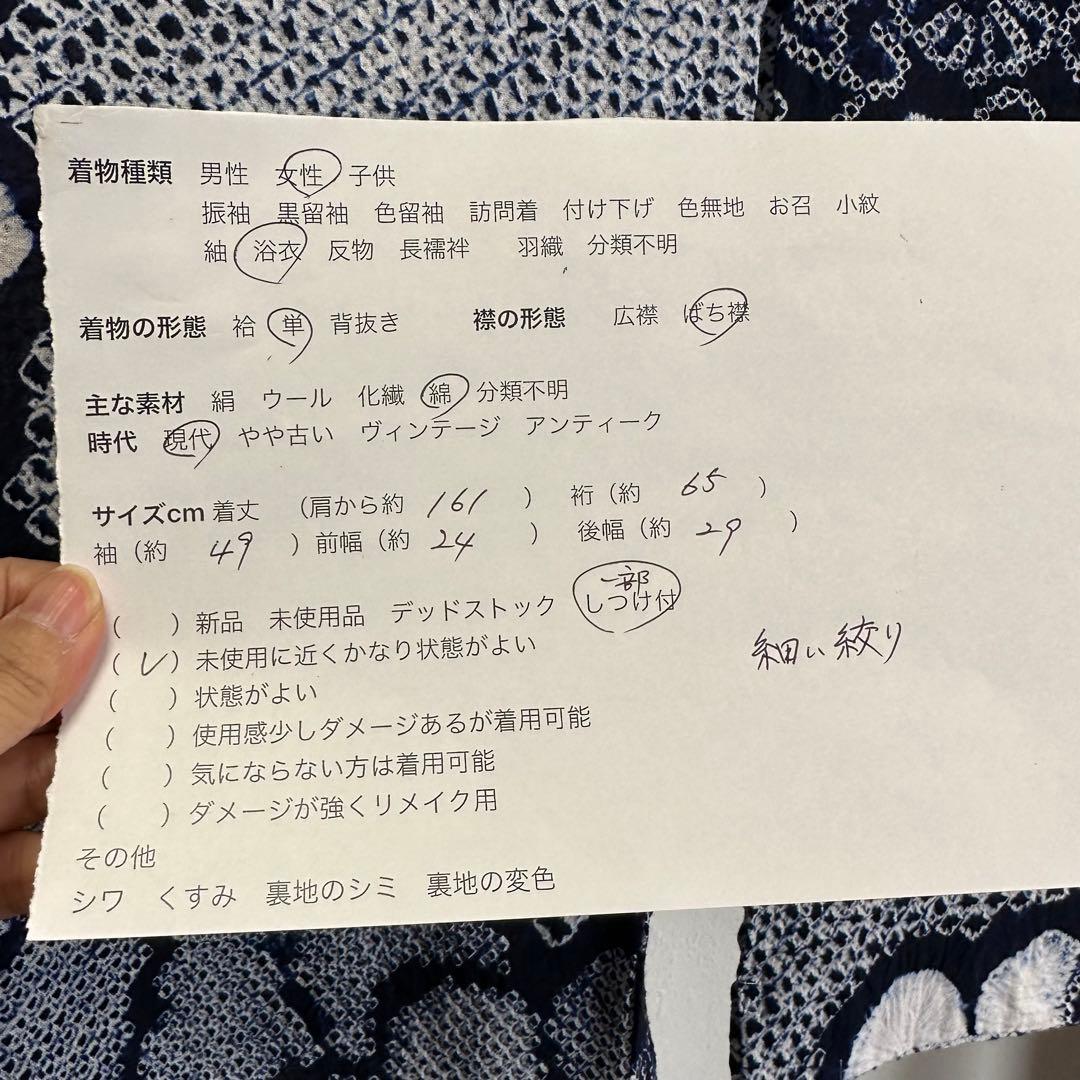 着物種類 男性 女性 子供
振袖 黒留袖 色留袖 訪問着 付け下げ 色無地 お召 小紋
紬 浴衣 反物 長襦袢 羽織 分類不明
着物の形態 袷 単 背抜き 襟の形態 広襟 ばち襟
主な素材 絹 ウール 化繊 綿 分類不明
時代 現代 やや古い ヴィンテージ アンティーク
サイズcm 着丈 (肩から約 161 ) 裄 (約 65 )
袖 (約 49 ) 前幅 (約 24 ) 後幅 (約 29 )
一部
( ) 新品 未使用品 デッドストック しつけ付
(レ) 未使用に近くかなり状態がよい
細い絞り
( ) 状態がよい
( ) 使用感少しダメージあるが着用可能
( ) 気にならない方は着用可能
( ) ダメージが強くリメイク用
その他
シワ くすみ 裏地のシミ 裏地の変色